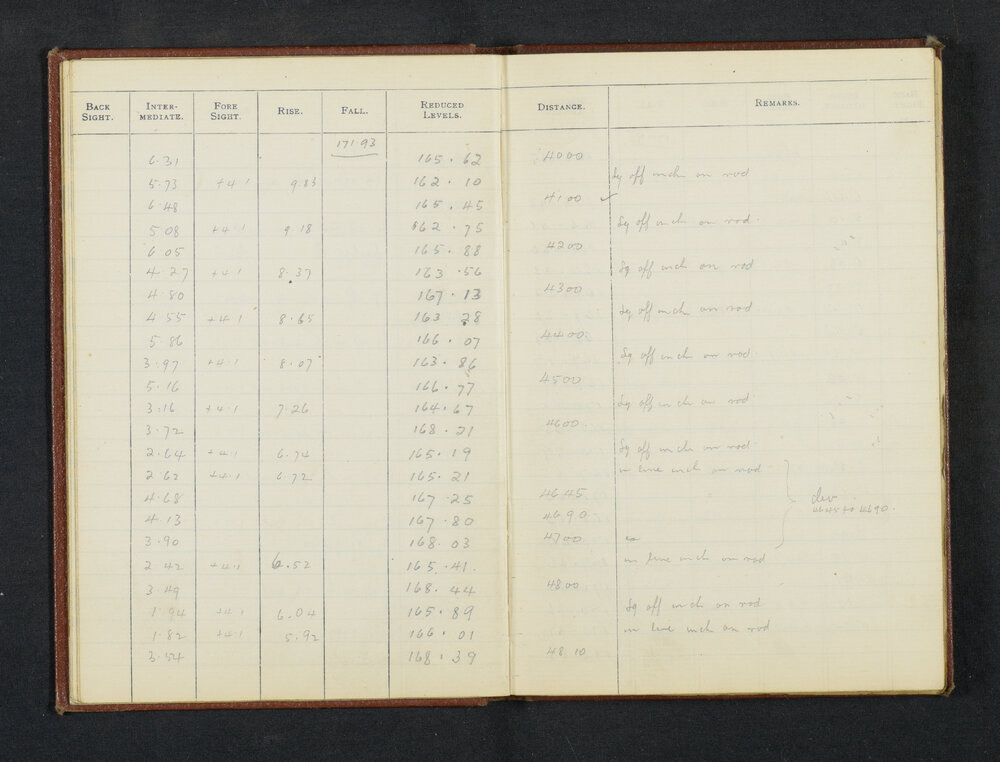 BACK SIGHT. INTER-MEDIATE. FORE SIGHT. RISE. FALL. REDUCED LEVELS. DISTANCE. REMARKS.
171.93
6.31 165.62 4000
5.73 +4.1 9.83 162.10 Sq off inch on rod
6.48 165.45 4100 ✓
5.08 +4.1 9.18 162.75 Sq off inch on rod
6.05 165.88 4200
4.27 +4.1 8.37 163.56 Sq off inch on rod
4.80 167.13 4300
4.55 +4.1 8.65 163 28 Sq off inch on rod
5.86 166.07 4400
3.97 +4.1 8.07 163.86 Sq off inch on rod
5.16 166.77 4500
3.16 +4.1 7.26 164.67 Sq off inch on rod
3.72 168.21 4600
2.64 +4.1 6.74 165.19 Sq off inch on rod
2.62 +4.1 6.72 165.21 in line inch on rod
4.68 167.25 4645 dev
4.13 167.80 4690 4645 to 4690.
3.90 168.03 4700
2.42 +4.1 6.52 165.41 in line inch on rod
3.49 168.44 4800
1.94 +4.1 6.04 165.89 Sq off inch on rod
1.82 +4.1 5.92 166.01 in line inch on rod
3.54 168.39 4810